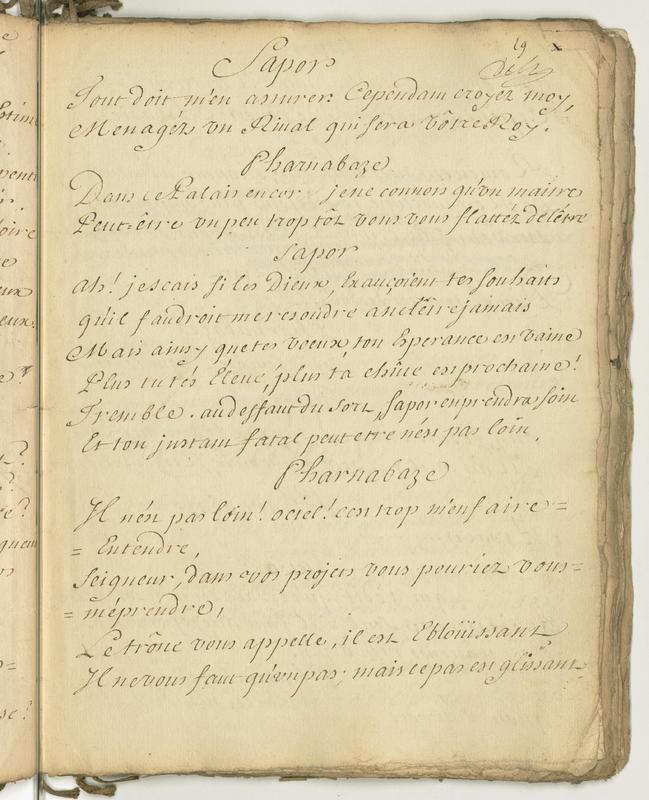 19 x
Sapor
Tout doit m'en assurer: Cependant croyez moy,
Menagéz vn Rival qui sera vôtre Roy.
Pharnabaze
Dans ce Palais encor je ne connois qu'vn maitre
Peut-être vn peu trop tôt vous vous flattéz de l'être
Sapor
ah! je scais si les Dieux, Exauçoient tes souhaits
qu'il faudroit me resoudre a ne l'être jamais
Mais ainsy que tes voeux, ton Esperance est vaine
Plus tu tés Élevé, plus ta chûte est prochaine!
Tremble. au deffaut du Sort, Sapor en prendra soin
Et ton instant fatal peut etre n'ést pas loin.
Pharnabaze
Il n'ést pas loin! o ciel! c'en trop m'en faire =
= Entendre,
Seigneur, dans vos projets vous pouriez vous=
= méprendre,
Le trône vous appelle, il est Eblöuissant
Il ne vous faut qu'vn pas; mais ce pas est glissant.